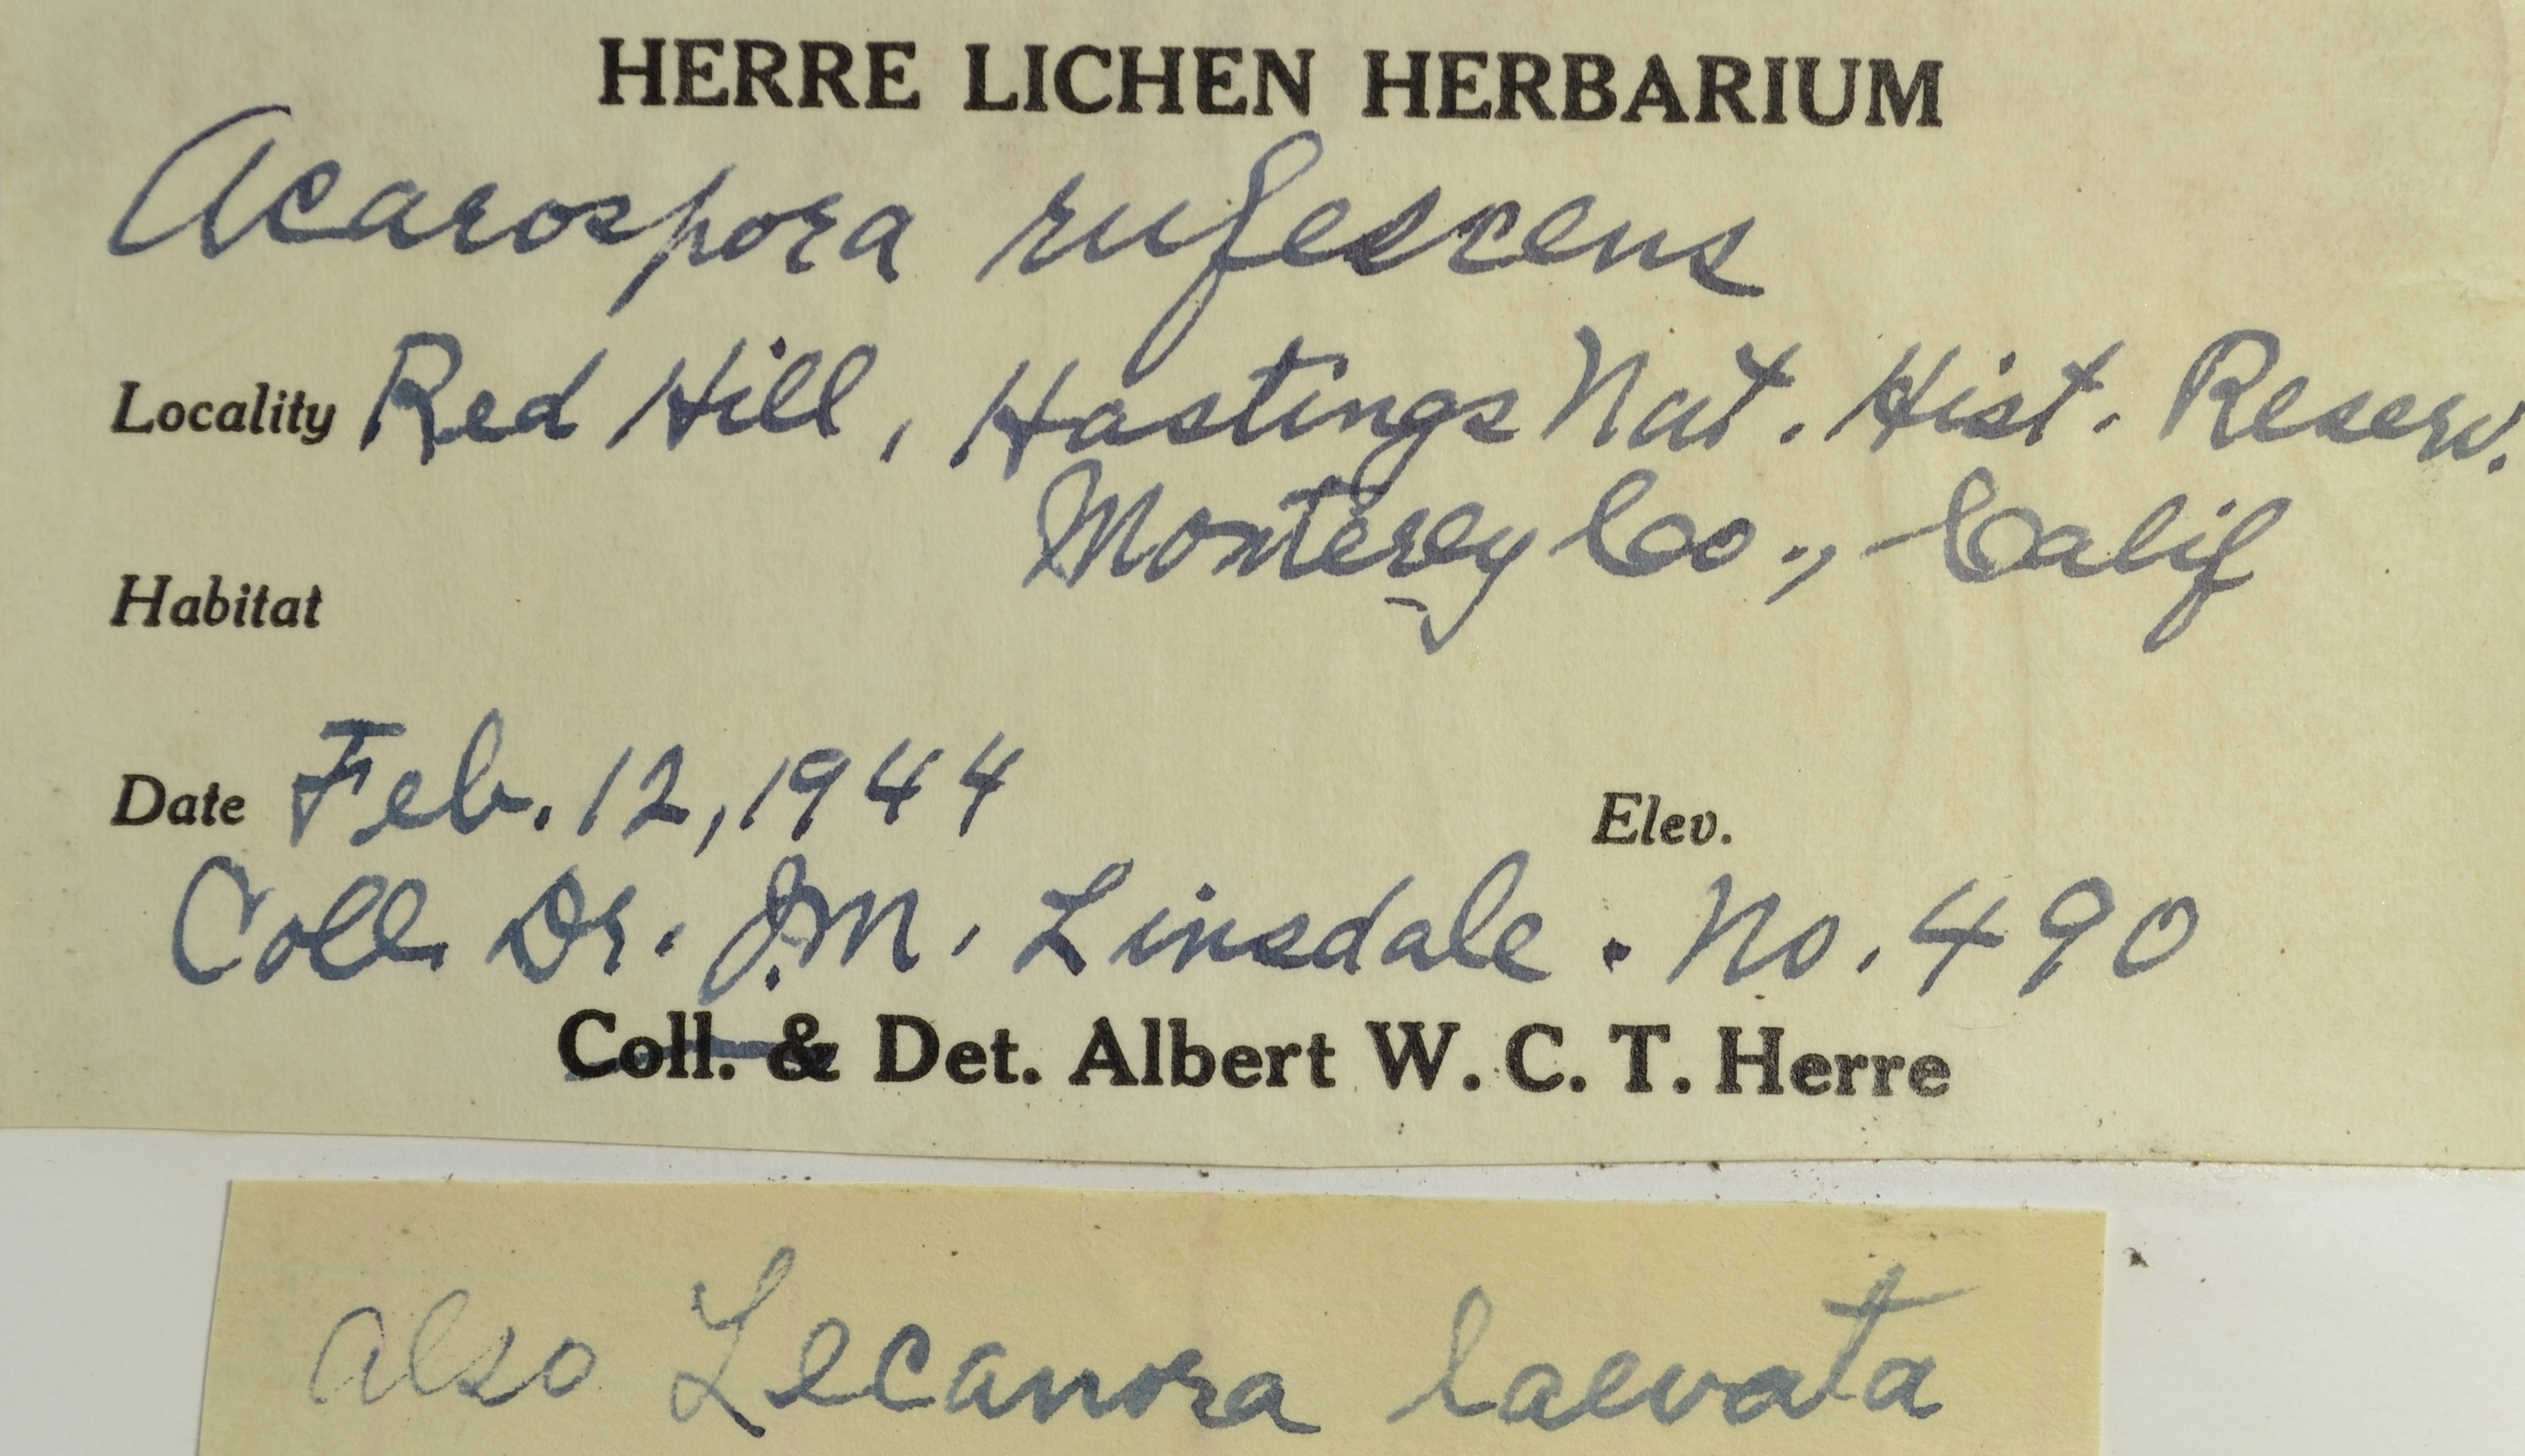 HERRE LICHEN HERBARIUM
Acarospora rufescens
Locality Red Hill, Hastings Nat. Hist. Reserv.
Monterey Co., Calif
Habitat
Date Feb. 12, 1944 Elev.
Coll. Dr. J.M. Linsdale. No. 490
Coll. & Det. Albert W. C. T. Herre
also Lecanora laevata